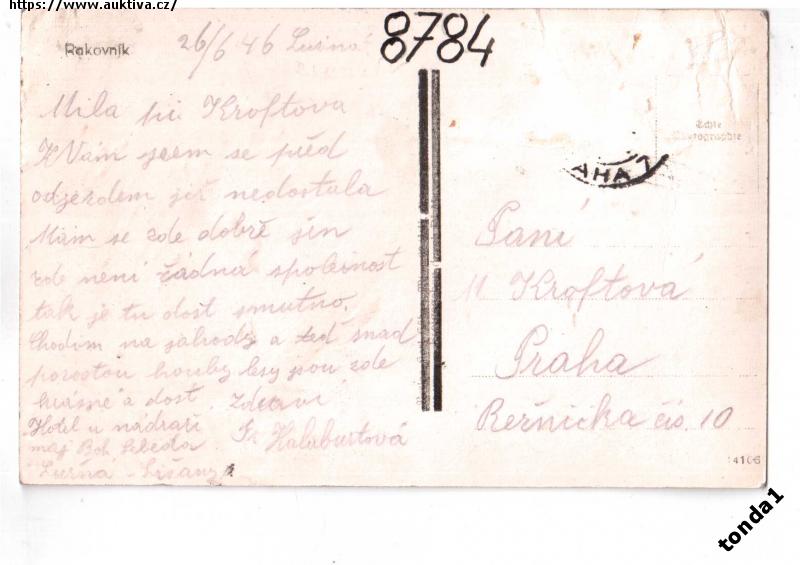 https://www.auktiva.cz/
Rakovník
26/6 46 Lužná
8784
Milá pí. Kroftova
K Vám jsem se před
odjezdem již nedostala
Mám se zde dobře jen
zde není žádná společnost
tak je tu dost smutno.
Chodím na jahody a teď snad
porostou houby lesy jsou zde
krásné a dost. Zdraví
Hotel u nádraží
maj Boh. Lebeda
Fr. Halaburtová
Lužna - Lišany
Echte
Photographie
AHA 1
Paní
M Kroftová
Praha
Řeznička čís. 10
14106
tonda1